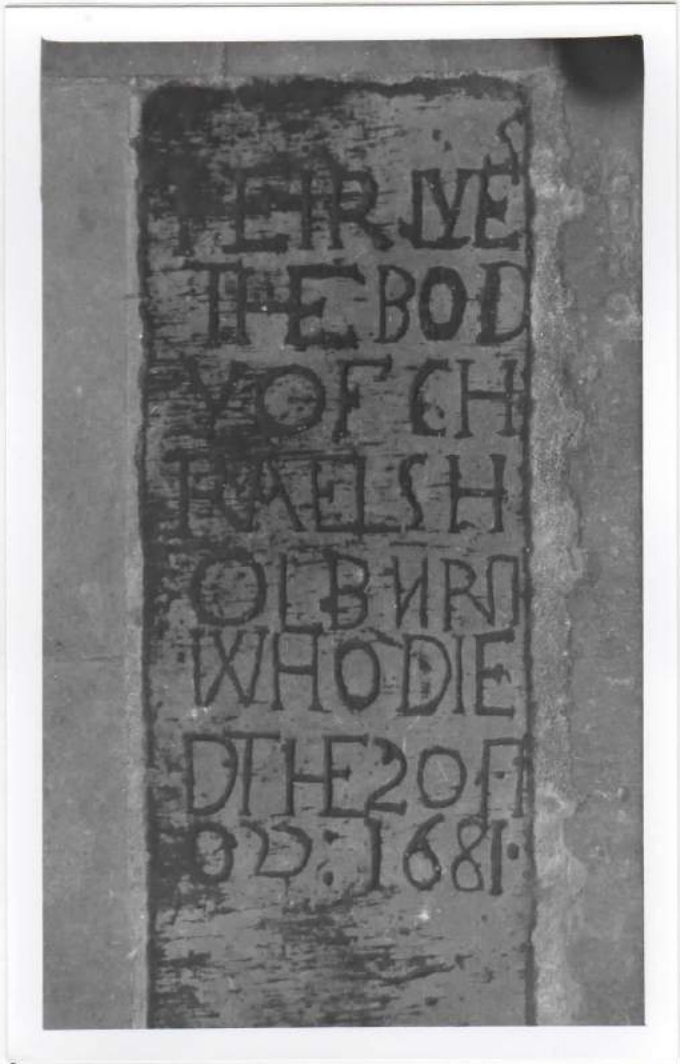 HEIR LYES
THE BOD
Y OF CH
RAELS H
OLBURN
WHO DIE
D THE 20 N
OV: 1681·